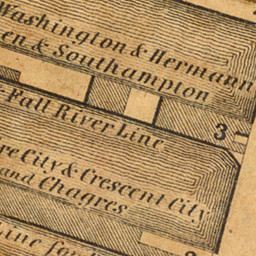 Washington & Hermann
en & Southampton
Fall River Line
3
re City & Crescent City
and Chagres
Line for